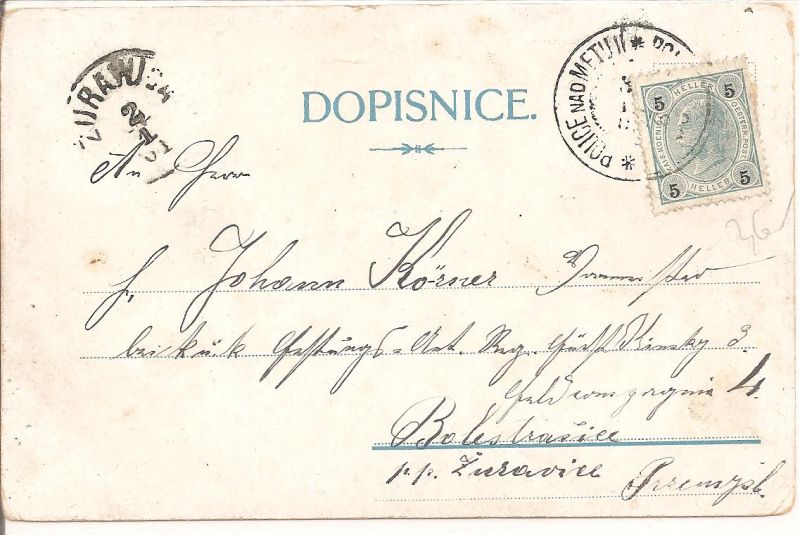 ŻURAWICA
24
01
DOPISNICE.
POLICE NAD METUJÍ * POL
5 HELLER 5
KAIS. KOENIGL. OESTERR. POST
5 HELLER 5
36
An Herrn
H. Johann Körner
bei k. u. k. Festungs-Art. Reg. Fürst Kinsky 3.
Feldcompagnie 4.
Bolestraszice
p. p. Żuravice Przemyśl.